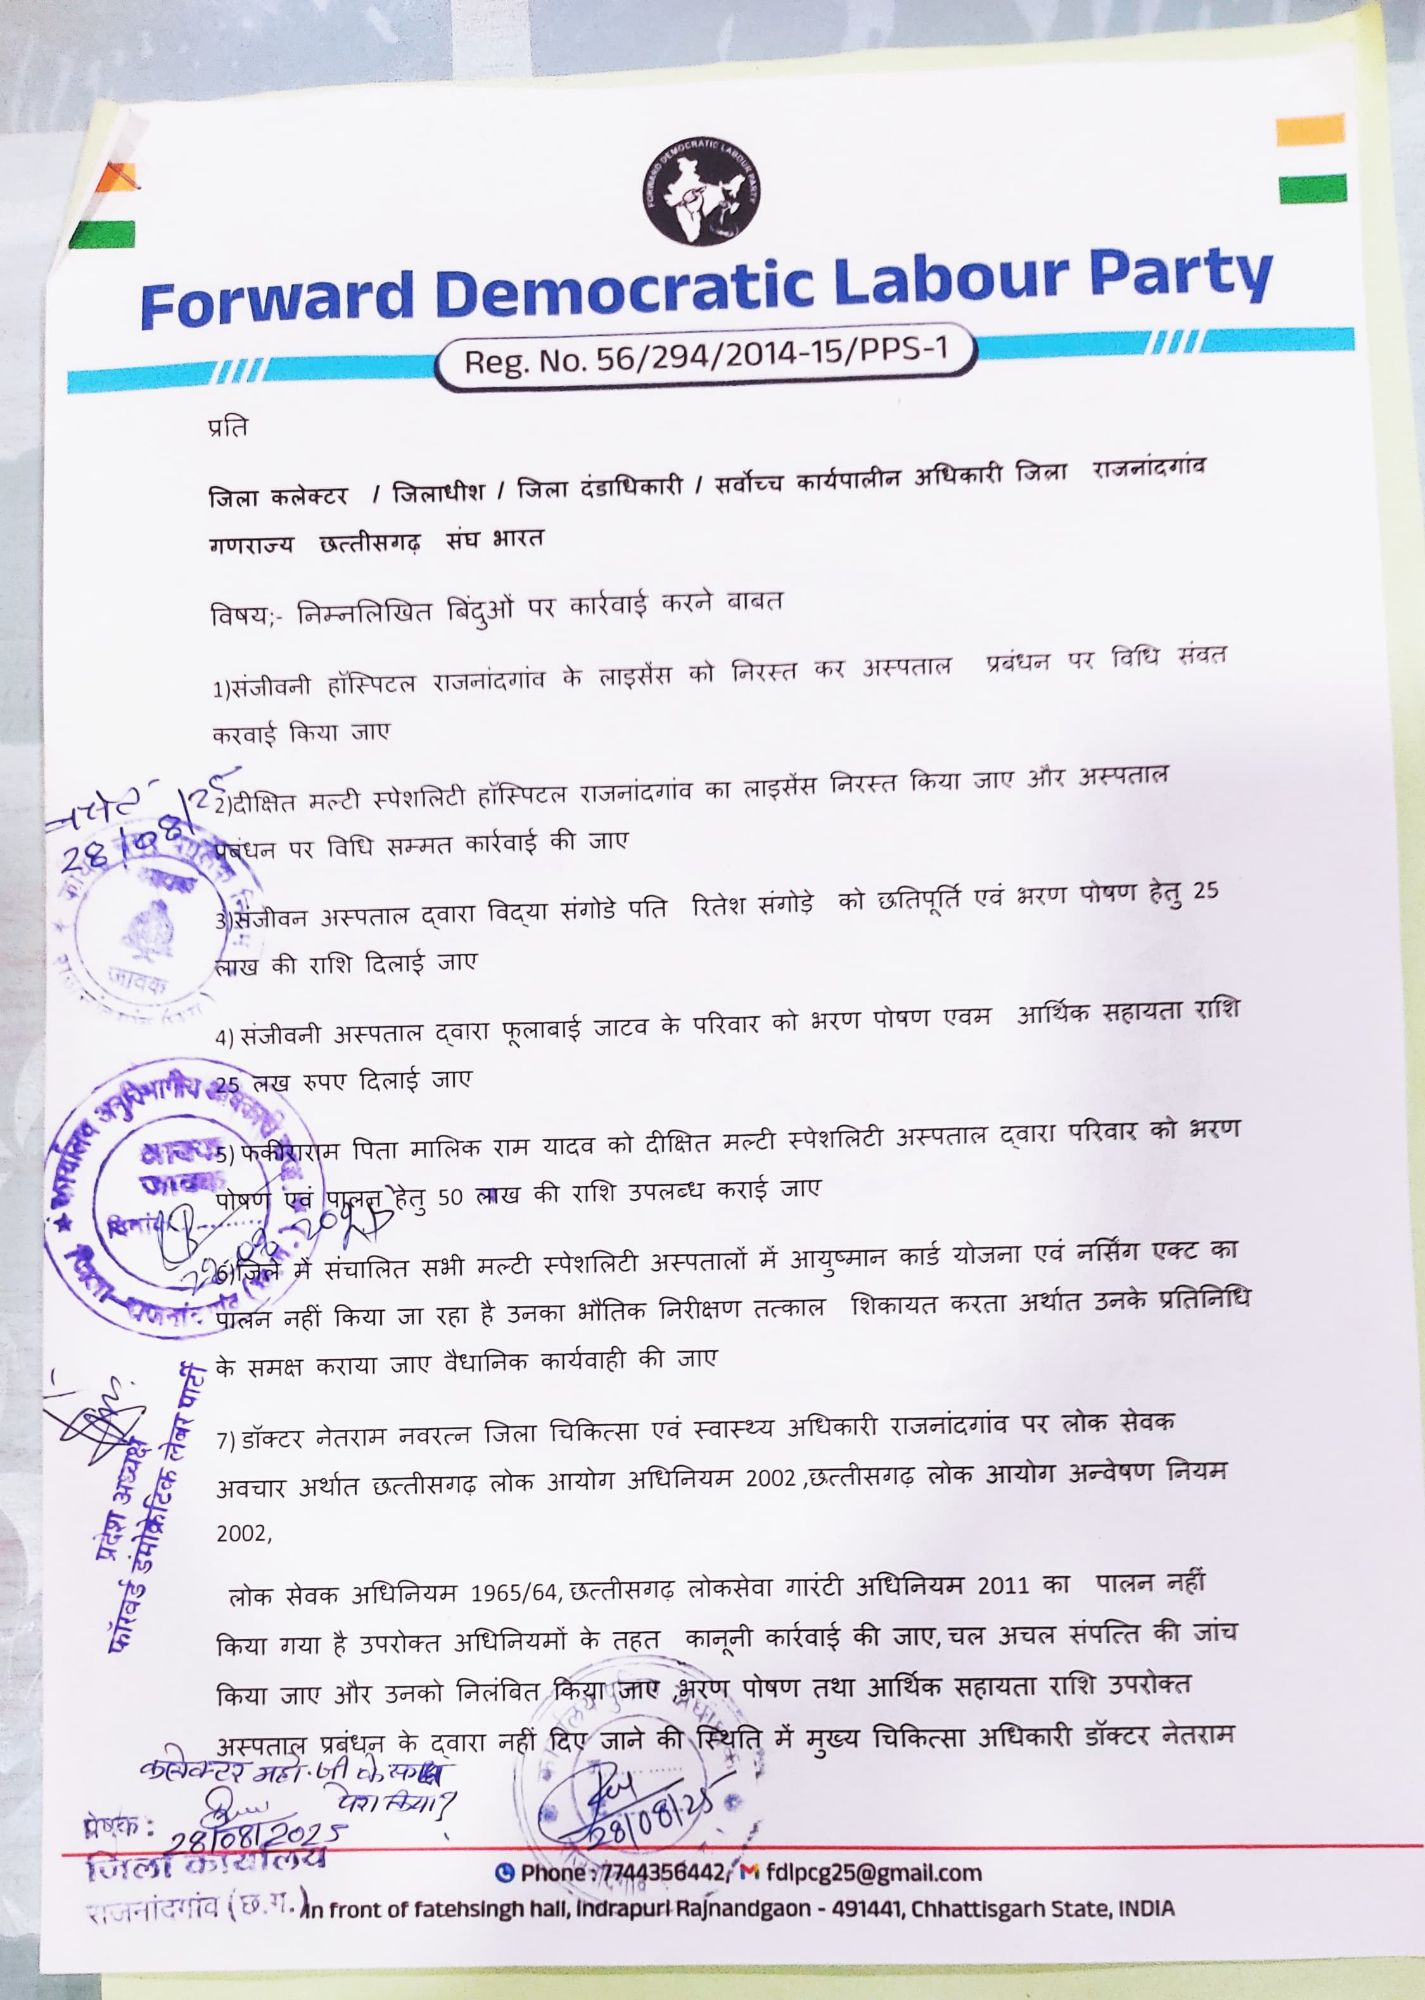 FORWARD DEMOCRATIC LABOUR PARTY
Forward Democratic Labour Party
Reg. No. 56/294/2014-15/PPS-1
प्रति
जिला कलेक्टर / जिलाधीश / जिला दंडाधिकारी / सर्वोच्च कार्यपालीन अधिकारी जिला राजनांदगांव
गणराज्य छत्तीसगढ़ संघ भारत
विषय;- निम्नलिखित बिंदुओं पर कार्रवाई करने बाबत
1)संजीवनी हॉस्पिटल राजनांदगांव के लाइसेंस को निरस्त कर अस्पताल प्रबंधन पर विधि संवत
करवाई किया जाए
2)दीक्षित मल्टी स्पेशलिटी हॉस्पिटल राजनांदगांव का लाइसेंस निरस्त किया जाए और अस्पताल
प्रबंधन पर विधि सम्मत कार्रवाई की जाए
28/08/25
जावक
3)संजीवन अस्पताल द्वारा विद्या संगोडे पति रितेश संगोड़े को छतिपूर्ति एवं भरण पोषण हेतु 25
लाख की राशि दिलाई जाए
4) संजीवनी अस्पताल द्वारा फूलाबाई जाटव के परिवार को भरण पोषण एवम आर्थिक सहायता राशि
25 लख रुपए दिलाई जाए
कार्यालय अनुविभागीय
जावक
5) फकीराराम पिता मालिक राम यादव को दीक्षित मल्टी स्पेशलिटी अस्पताल द्वारा परिवार को भरण
पोषण एवं पालन हेतु 50 लाख की राशि उपलब्ध कराई जाए
6)जिले में संचालित सभी मल्टी स्पेशलिटी अस्पतालों में आयुष्मान कार्ड योजना एवं नर्सिंग एक्ट का
पालन नहीं किया जा रहा है उनका भौतिक निरीक्षण तत्काल शिकायत करता अर्थात उनके प्रतिनिधि
के समक्ष कराया जाए वैधानिक कार्यवाही की जाए
प्रदेश अध्यक्ष
फॉरवर्ड डेमोक्रेटिक लेबर पार्टी
7) डॉक्टर नेतराम नवरत्न जिला चिकित्सा एवं स्वास्थ्य अधिकारी राजनांदगांव पर लोक सेवक
अवचार अर्थात छत्तीसगढ़ लोक आयोग अधिनियम 2002 ,छत्तीसगढ़ लोक आयोग अन्वेषण नियम
2002,
लोक सेवक अधिनियम 1965/64, छत्तीसगढ़ लोकसेवा गारंटी अधिनियम 2011 का पालन नहीं
किया गया है उपरोक्त अधिनियमों के तहत कानूनी कार्रवाई की जाए, चल अचल संपत्ति की जांच
किया जाए और उनको निलंबित किया जाए ,भरण पोषण तथा आर्थिक सहायता राशि उपरोक्त
अस्पताल प्रबंधन के द्वारा नहीं दिए जाने की स्थिति में मुख्य चिकित्सा अधिकारी डॉक्टर नेतराम
कलेक्टर महो. जी के समक्ष
पेश किया?
28/08/2025
28/08/25
प्रेषक :
जिला कार्यालय
राजनांदगांव (छ.ग.)
Phone : 7744356442, fdlpcg25@gmail.com
In front of fatehsingh hall, Indrapuri Rajnandgaon - 491441, Chhattisgarh State, INDIA